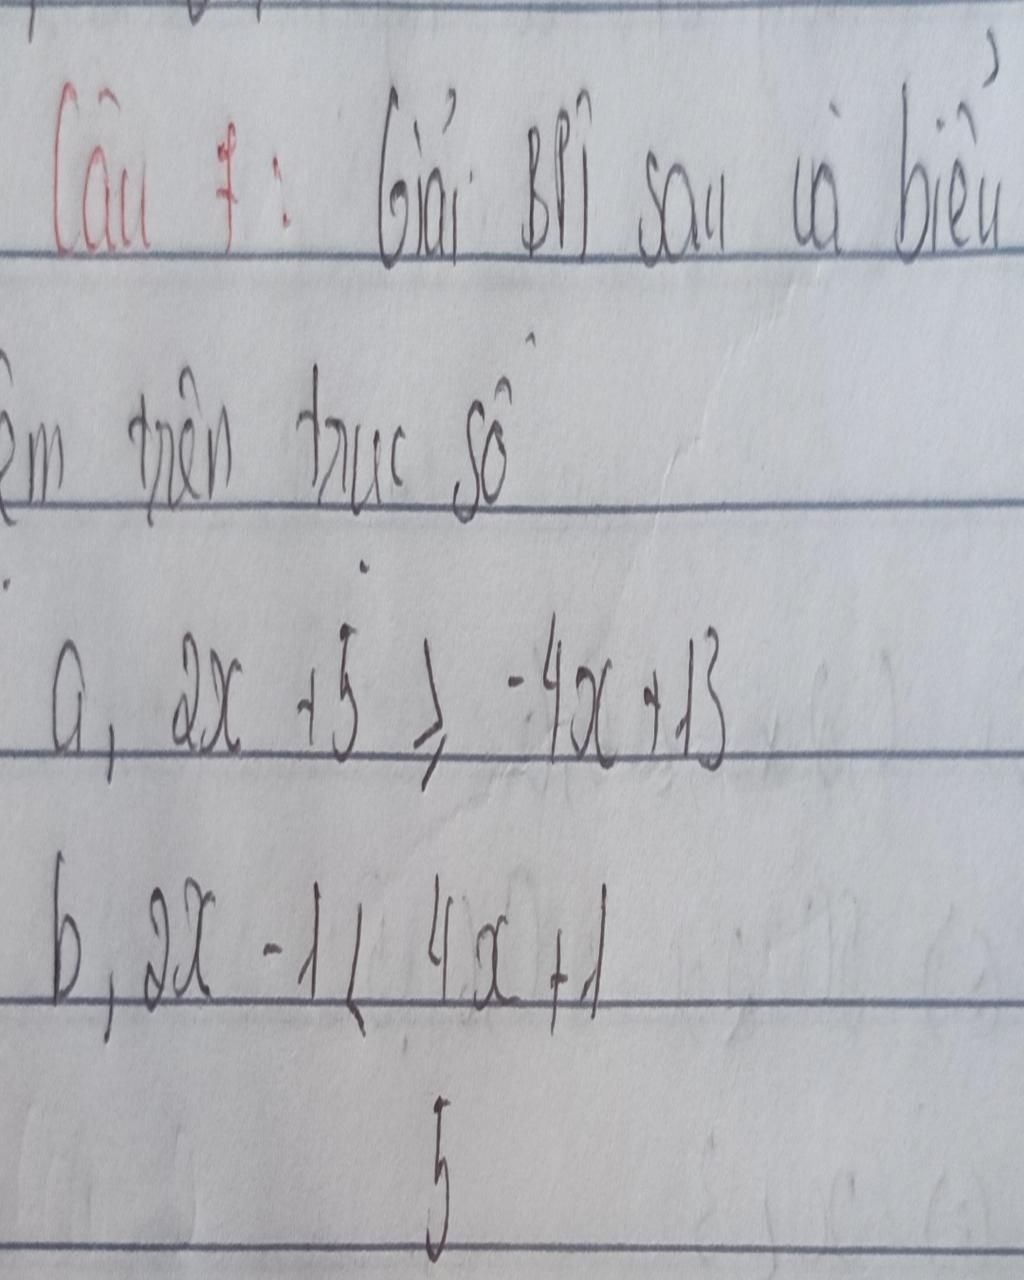 Câu 7: Giải BPT sau và biểu
trên trục số
a, 2x + 5 ⩾ -4x + 13
b, 2x - 1 < 4x + 1
5